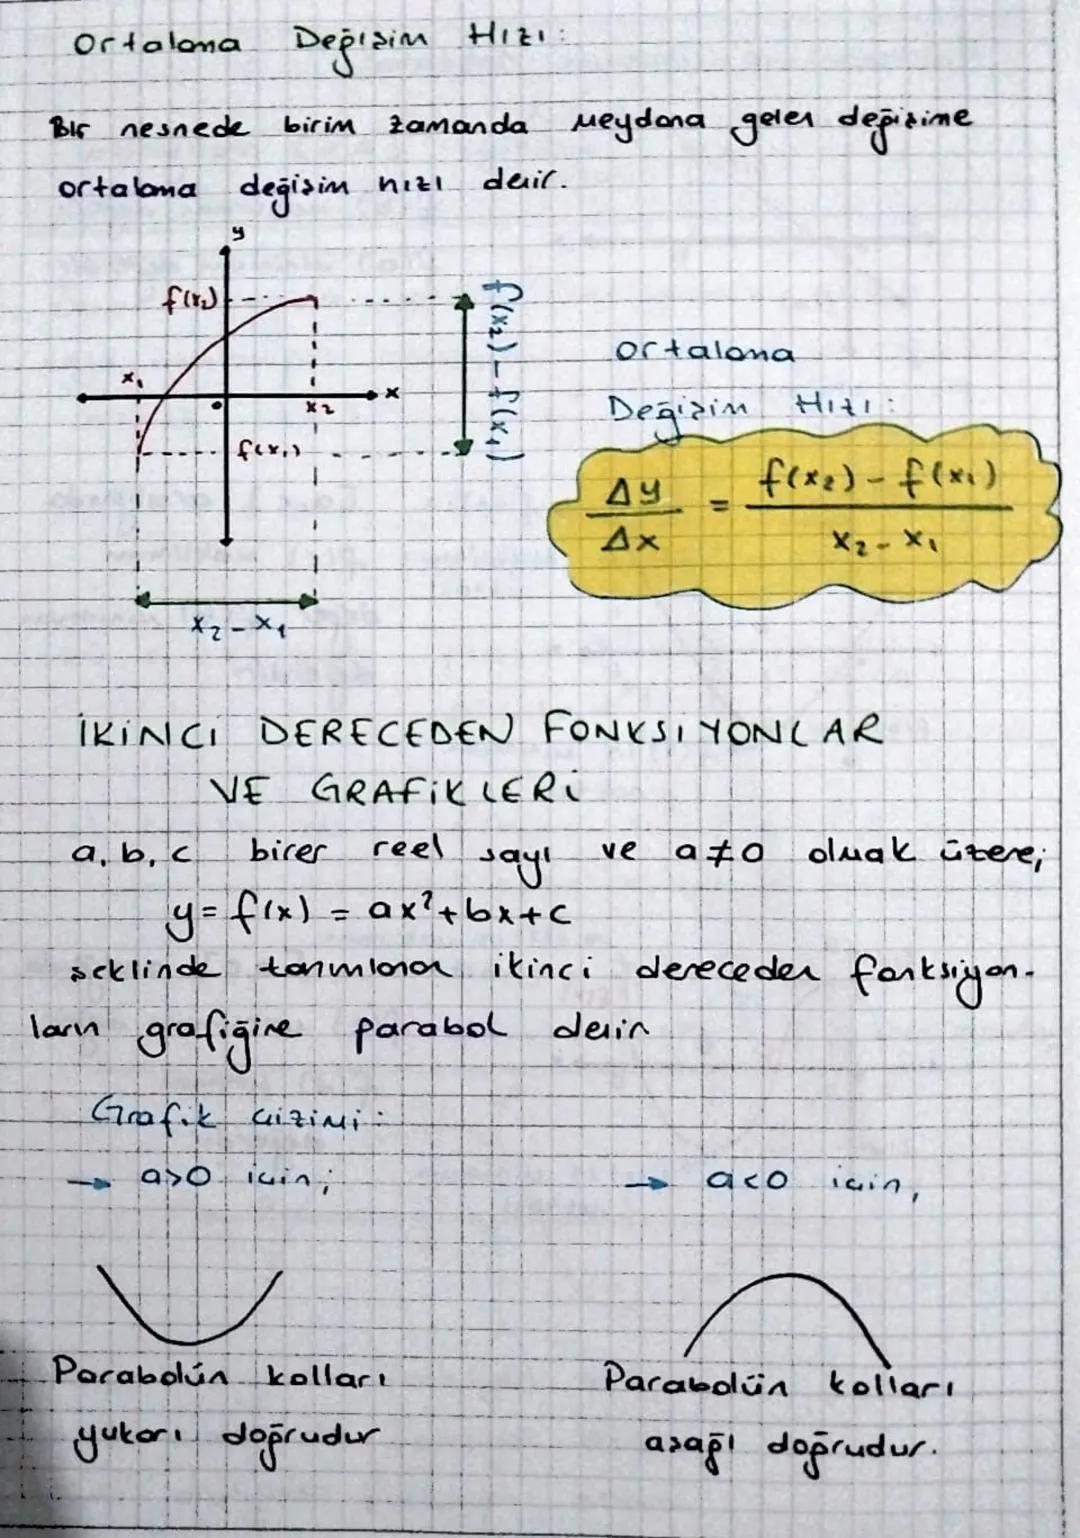 Ortalama Değişim Hızı:
Bir nesnede birim zamanda meydana gelen değişime
ortalama değişim hızı denir.
y
f(x₂)
x₁
x
x₂
f(x₁)
f(x₂) - f(x₁)
x₂ - x₁
Ortalama
Değişim Hızı:
Δy / Δx = f(x₂) - f(x₁) / x₂ - x₁
İKİNCİ DERECEDEN FONKSİYONLAR
VE GRAFİKLERİ
a, b, c birer reel sayı ve a≠0 olmak üzere;
y = f(x) = ax²+bx+c
şeklinde tanımlanan ikinci dereceden fonksiyon-
ların grafiğine parabol denir
Grafik Çizimi:
→ a>0 için;
→ a<0 için,
Parabolün kolları
yukarı doğrudur
Parabolün kolları
aşağı doğrudur.